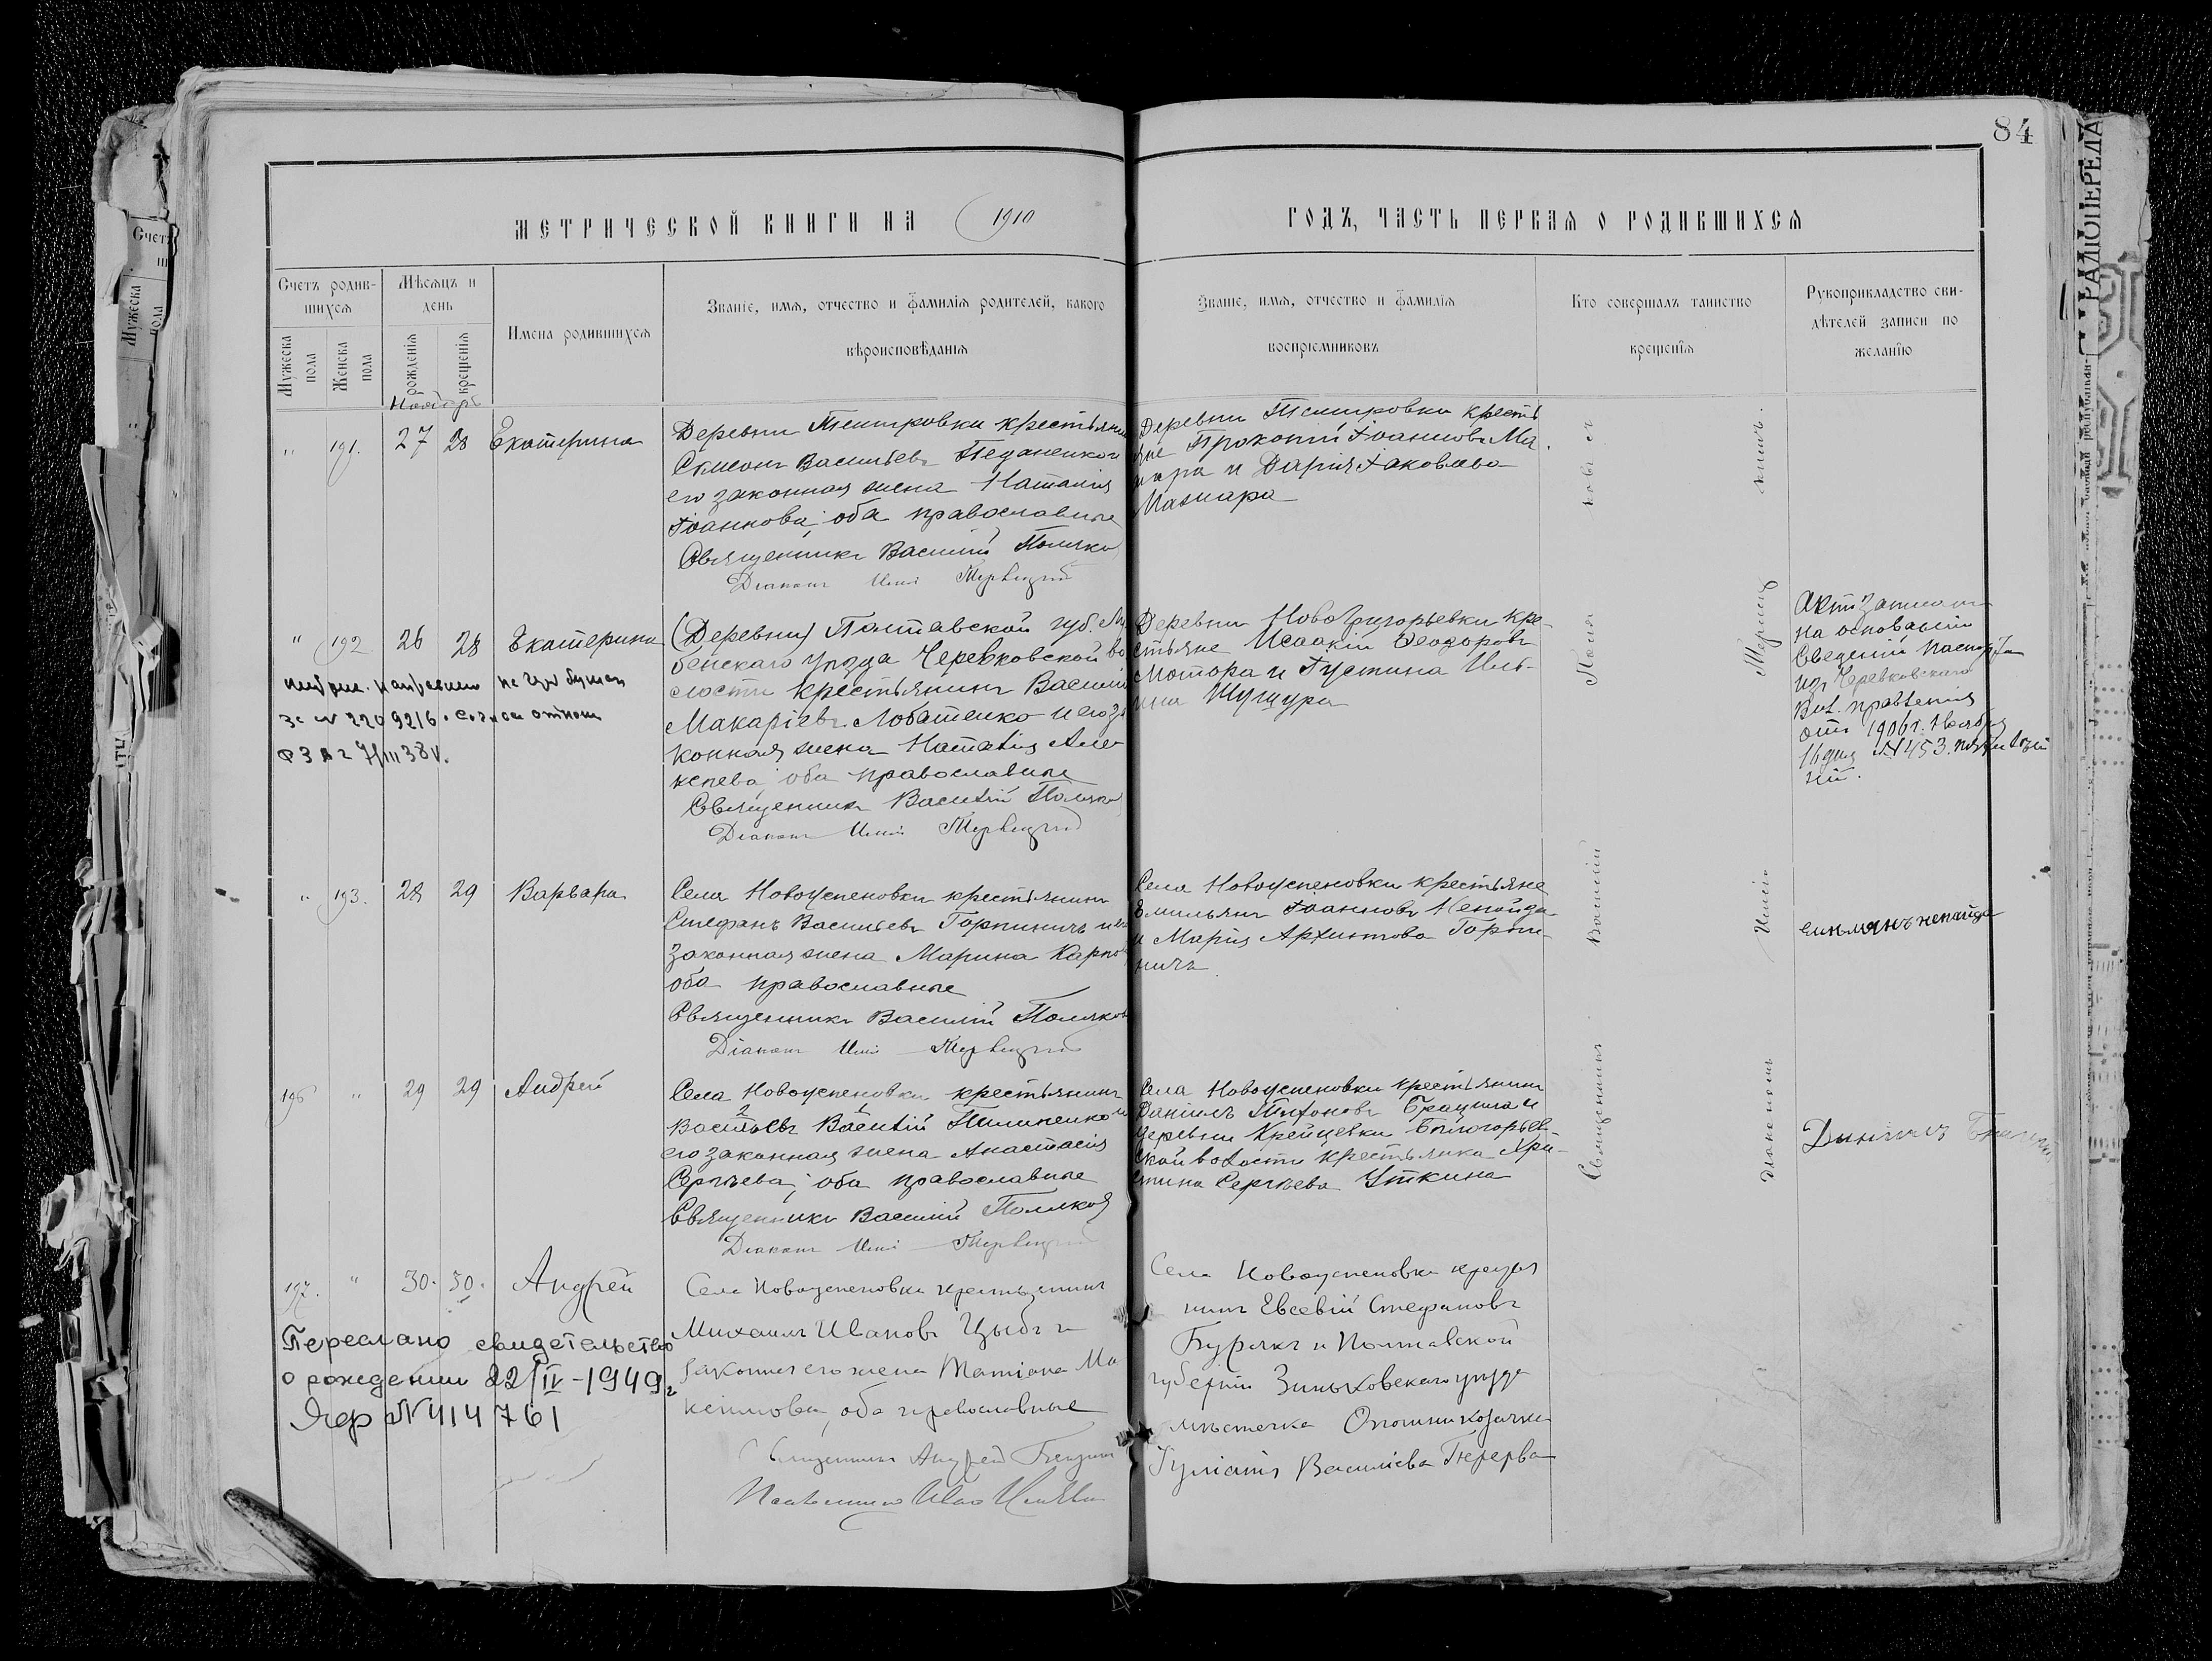 84
МЕТРИЧЕСКОЙ КНИГИ НА 1910
ГОДЪ, ЧАСТЬ ПЕРВАЯ О РОДИВШИХСЯ
Счетъ родив-
шихся
Мужеска пола
Женска пола
Мѣсяцъ и
день
рожденія
крещенія
Имена родившихся
Званіе, имя, отчество и фамилія родителей, какого
вѣроисповѣданія
Званіе, имя, отчество и фамилія
воспріемниковъ
Кто совершалъ таинство
крещенія
Рукоприкладство сви-
дѣтелей записи по
желанію
Ноябрь
" 191. 27 28 Екатерина
Деревни крестьянинъ
Васильевъ и
его законная жена Наталія
Іоаннова; оба православные
Священникъ Василій Поляковъ
Діаконъ Илія
Деревни кресть
яне Прокопій Іоанновъ Ма
и Дарія Іаковлева
" 192 26 28 Екатерина
(Деревни) Полтавской губ. Лу
бенскаго уѣзда Черевковской во
лости крестьянинъ Василій
Макаріевъ Лобатенко и его за
конная жена Наталія Але
оба православные
Священникъ Василій Поляковъ
Діаконъ Илія
Деревни Новогригорьевки кре-
стьяне Исаакій Ѳеодоровъ
Мотора и Густина Иль-
ина Шущура
Актъ записанъ
на основаніи
Сведеній паспорта
изъ Черевковскаго
Вол. правленія
отъ 1906 г. Ноября
16 дня №453.
за № 2209216.
ФЗ 7/III 38 г.
" 193. 28 29 Варвара
Села Новоуспеновки крестьянинъ
Стефанъ Васильевъ Горпиничъ и его
законная жена Марина Карпова
оба православные
Священникъ Василій Поляковъ
Діаконъ Илія
Села Новоуспеновки крестьяне
Емильянъ Іоанновъ Непойда
и Марія Архиптова Горпи-
ничъ
емилянъ непайда
196 " 29 29 Андрей
Села Новоуспеновки крестьянинъ
2 1
Васильевъ Василій Пилипенко и
его законная жена Анастасія
Сергѣева; оба православные
Священникъ Василій Поляковъ
Діаконъ Илія
Села Новоуспеновки крестьянинъ
Даніилъ и
деревни Крейцевки Бѣлогорьев-
ской волости крестьянка Хри-
стина Сергѣева Уткина
197. " 30. 30. Андрей
Села Новоуспеновки крестьянинъ
Михаилъ Ивановъ Цыбъ и
законная его жена Татіана Ма
ксимова, оба православные
Священникъ Андрей
Псаломщикъ
Села Новоуспеновки кресья
нинъ Евсевій Стефановъ
Бурякъ и Полтавской
губерніи Зиньковскаго уѣзда
мѣстечка Опошни козачка
Іуліанія Василіева Перерва
Переслано свидетельство
о рождении 22/IV-1949 г
Яер №414761
Священникъ Василій Поляковъ
Діаконъ Илія